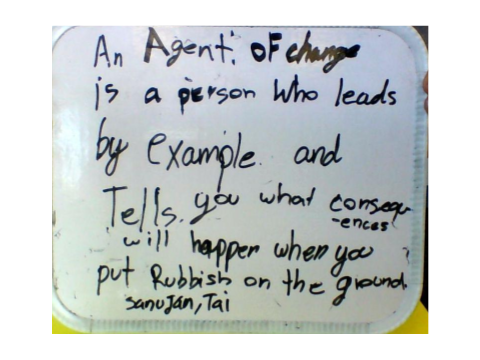 An Agent. of change
is a person who leads
by example. and
Tells. you what consequ
-ences
will happen when you
put Rubbish on the ground.
sanujan, Tai